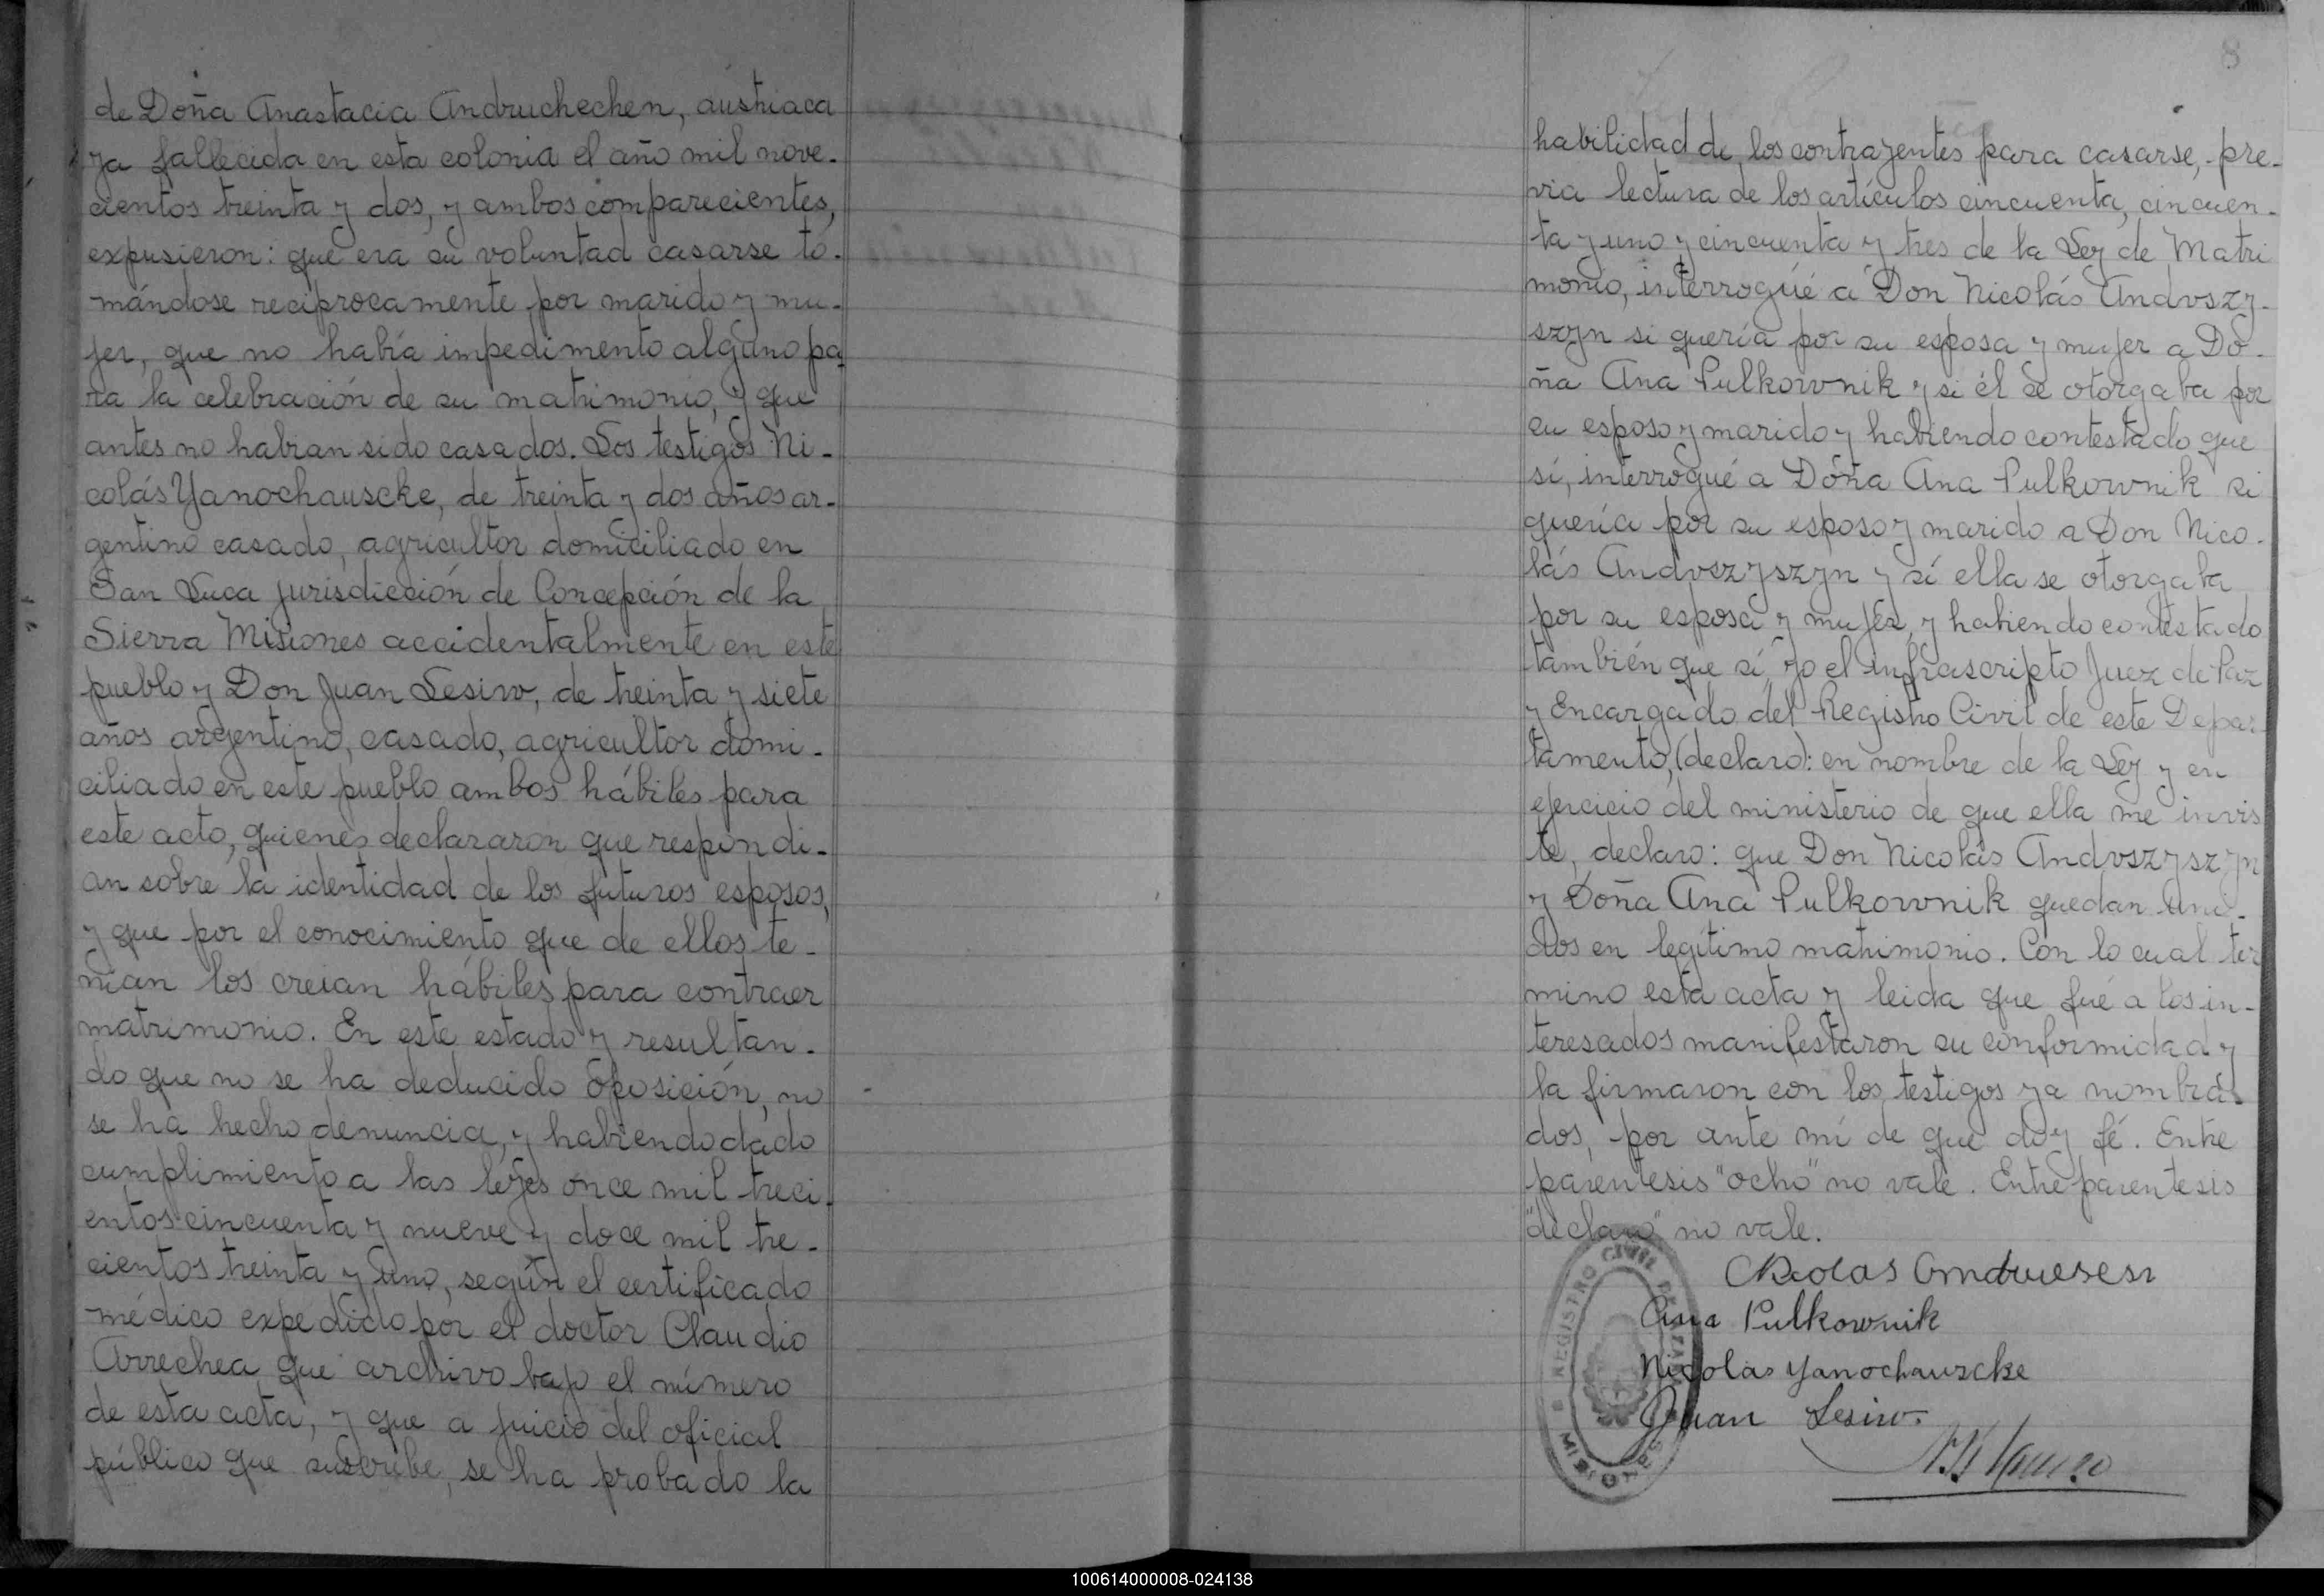 de Doña Anastacia Andruchechen, austriaca
ya fallecida en esta colonia el año mil nove-
cientos treinta y dos, y ambos comparecientes,
expusieron: que era su voluntad casarse to-
mándose reciprocamente por marido y mu-
jer, que no había impedimento alguno pa-
ra la celebración de su matrimonio, y que
antes no habian sido casados. Los testigos Ni-
colás Yanochauscke, de treinta y dos años ar-
gentino casado, agricultor domiciliado en
San Luca jurisdicción de Concepción de la
Sierra Misiones accidentalmente en este
pueblo y Don Juan Lesiw, de treinta y siete
años argentino, casado, agricultor domi-
ciliado en este pueblo ambos hábiles para
este acto, quienes declararon que respondi-
an sobre la identidad de los futuros esposos,
y que por el conocimiento que de ellos te-
nian los creian hábiles para contraer
matrimonio. En este estado y resultan-
do que no se ha deducido oposición, no
se ha hecho denuncia, y habiendo dado
cumplimiento a las leyes once mil treci-
entos cincuenta y nueve y doce mil tre-
cientos treinta y uno, según el certificado
médico expedido por el doctor Claudio
Arrechea que archivo bajo el número
de esta acta, y que a juicio del oficial
público que suscribe, se ha probado la
8
habilidad de los contrayentes para casarse, pre-
via lectura de los artículos cincuenta, cincuen-
ta y uno y cincuenta y tres de la Ley de Matri
monio, interrogüé a Don Nicolás Andvszy-
szyn si quería por su esposa y mujer a Do-
ña Ana Pulkownik y si él se otorgaba por
su esposo y marido y habiendo contestado que
sí, interrogué a Doña Ana Pulkownik si
quería por su esposo y marido a Don Nico-
lás Andvszyszyn y sí ella se otorgaba
por su esposa y mujer, y habiendo contestado
también que sí, yo el infrascripto Juez de Paz
y Encargado del Registro Civil de este Depar-
tamento, (declaro): en nombre de la Ley y en
ejercicio del ministerio de que ella me invis
te, declaro: que Don Nicolás Andvszyszyn
y Doña Ana Pulkownik quedan uni-
dos en legítimo matrimonio. Con lo cual ter
mino esta acta y leida que fué a los in-
teresados manifestaron su conformidad y
la firmaron con los testigos ya nombra-
dos, por ante mí de que doy fé. Entre
paréntesis "ocho" no vale. Entre parentesis
"declaro" no vale.
Nicolas
Ana Pulkownik
Nicolas Yanochauscke
Juan Lesiw.
REGISTRO CIVIL
MISIONES
100614000008-024138